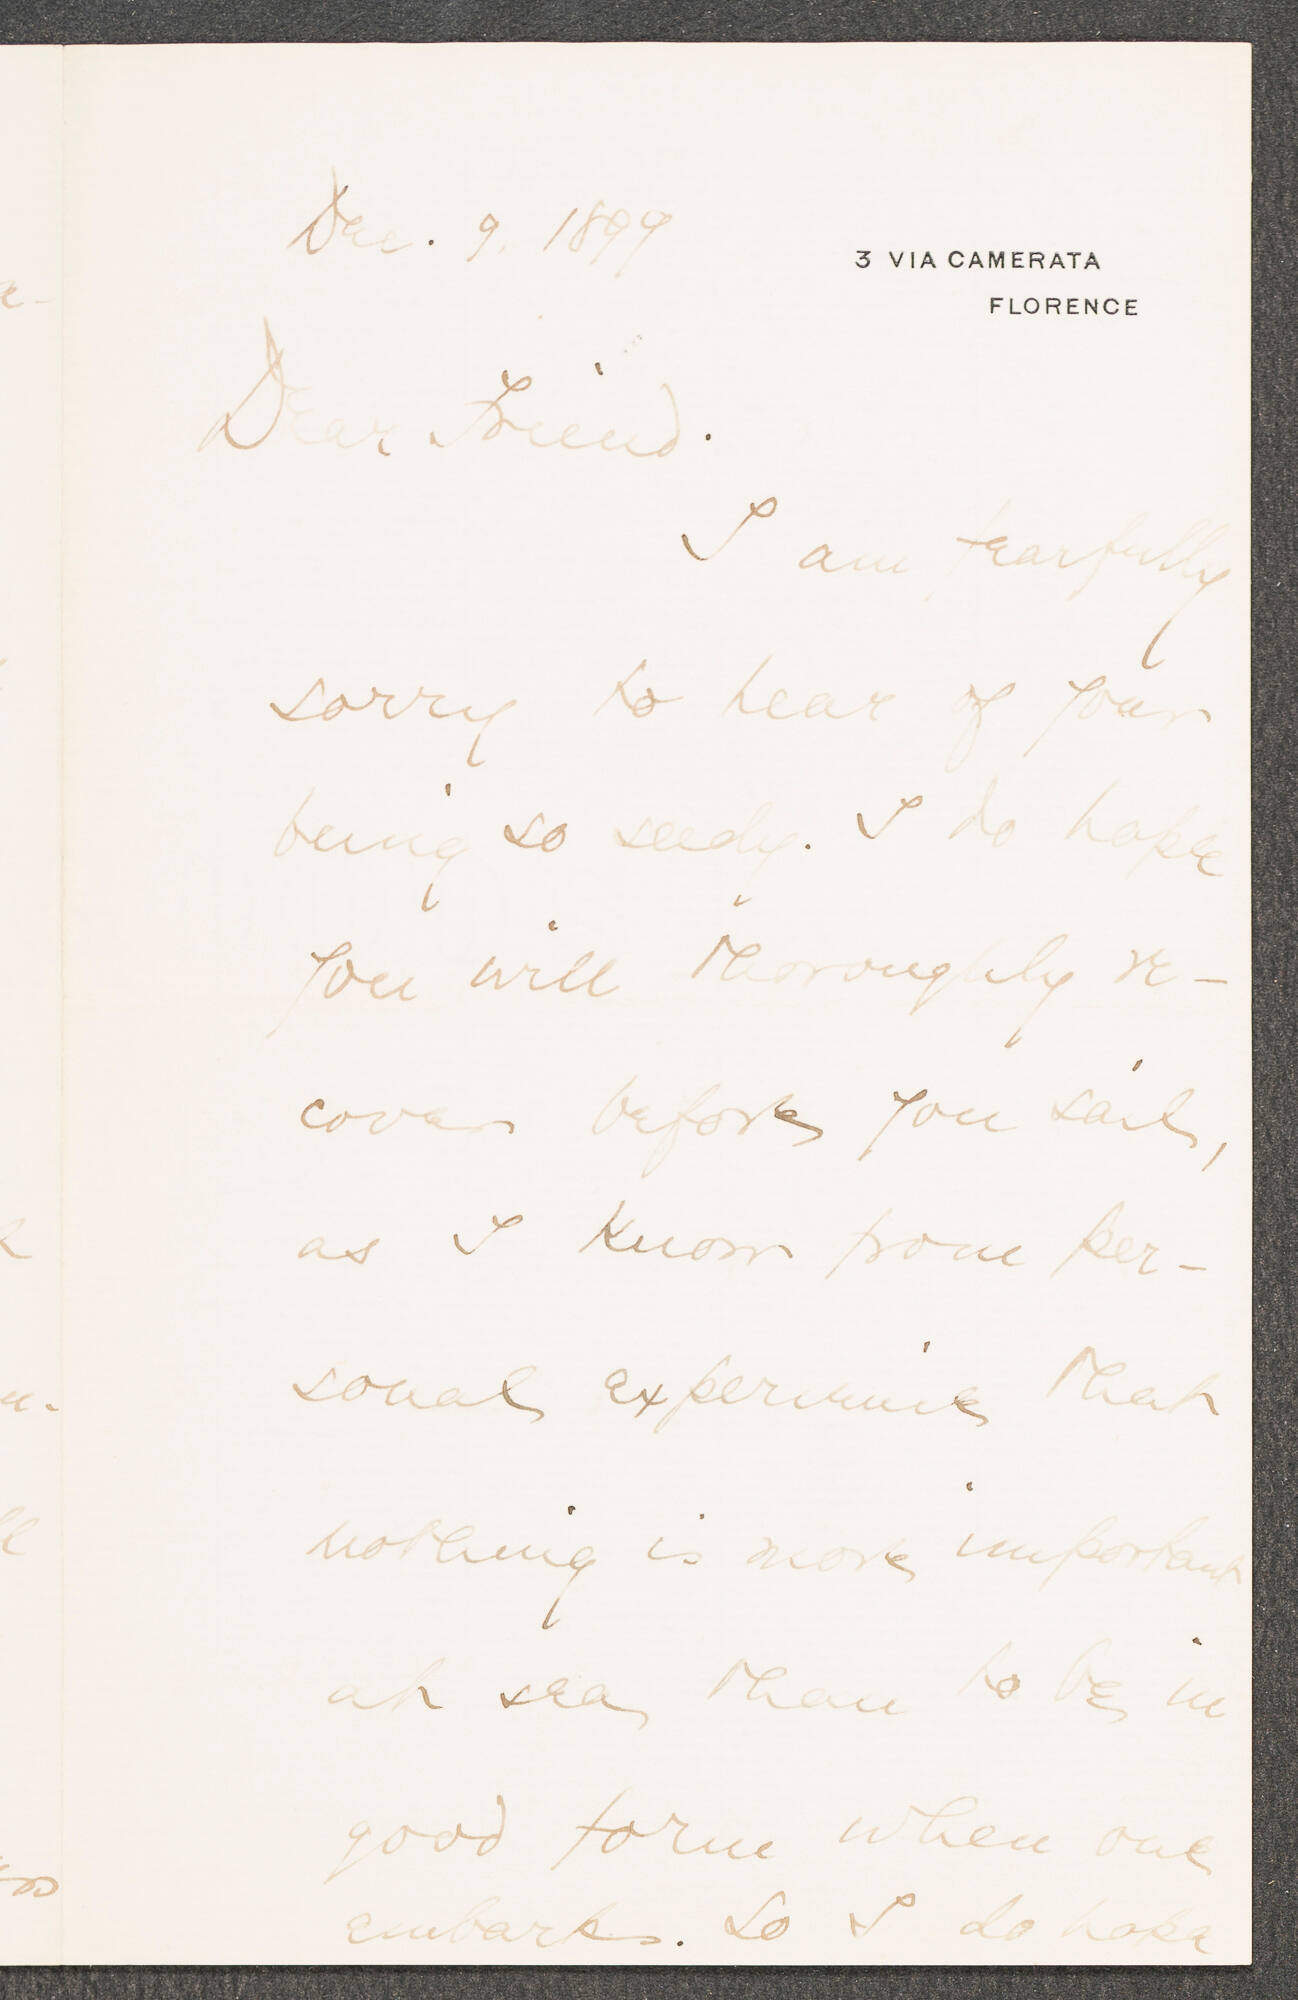 Dec. 9. 1899
3 VIA CAMERATA
FLORENCE
Dear Friend.
I am fearfully
sorry to hear of your
being so seedy. I do hope
you will thoroughly re-
cover before you sail,
as I know from per-
sonal experience that
nothing is more important
at sea than to be in
good form when one
embarks. So I do hope